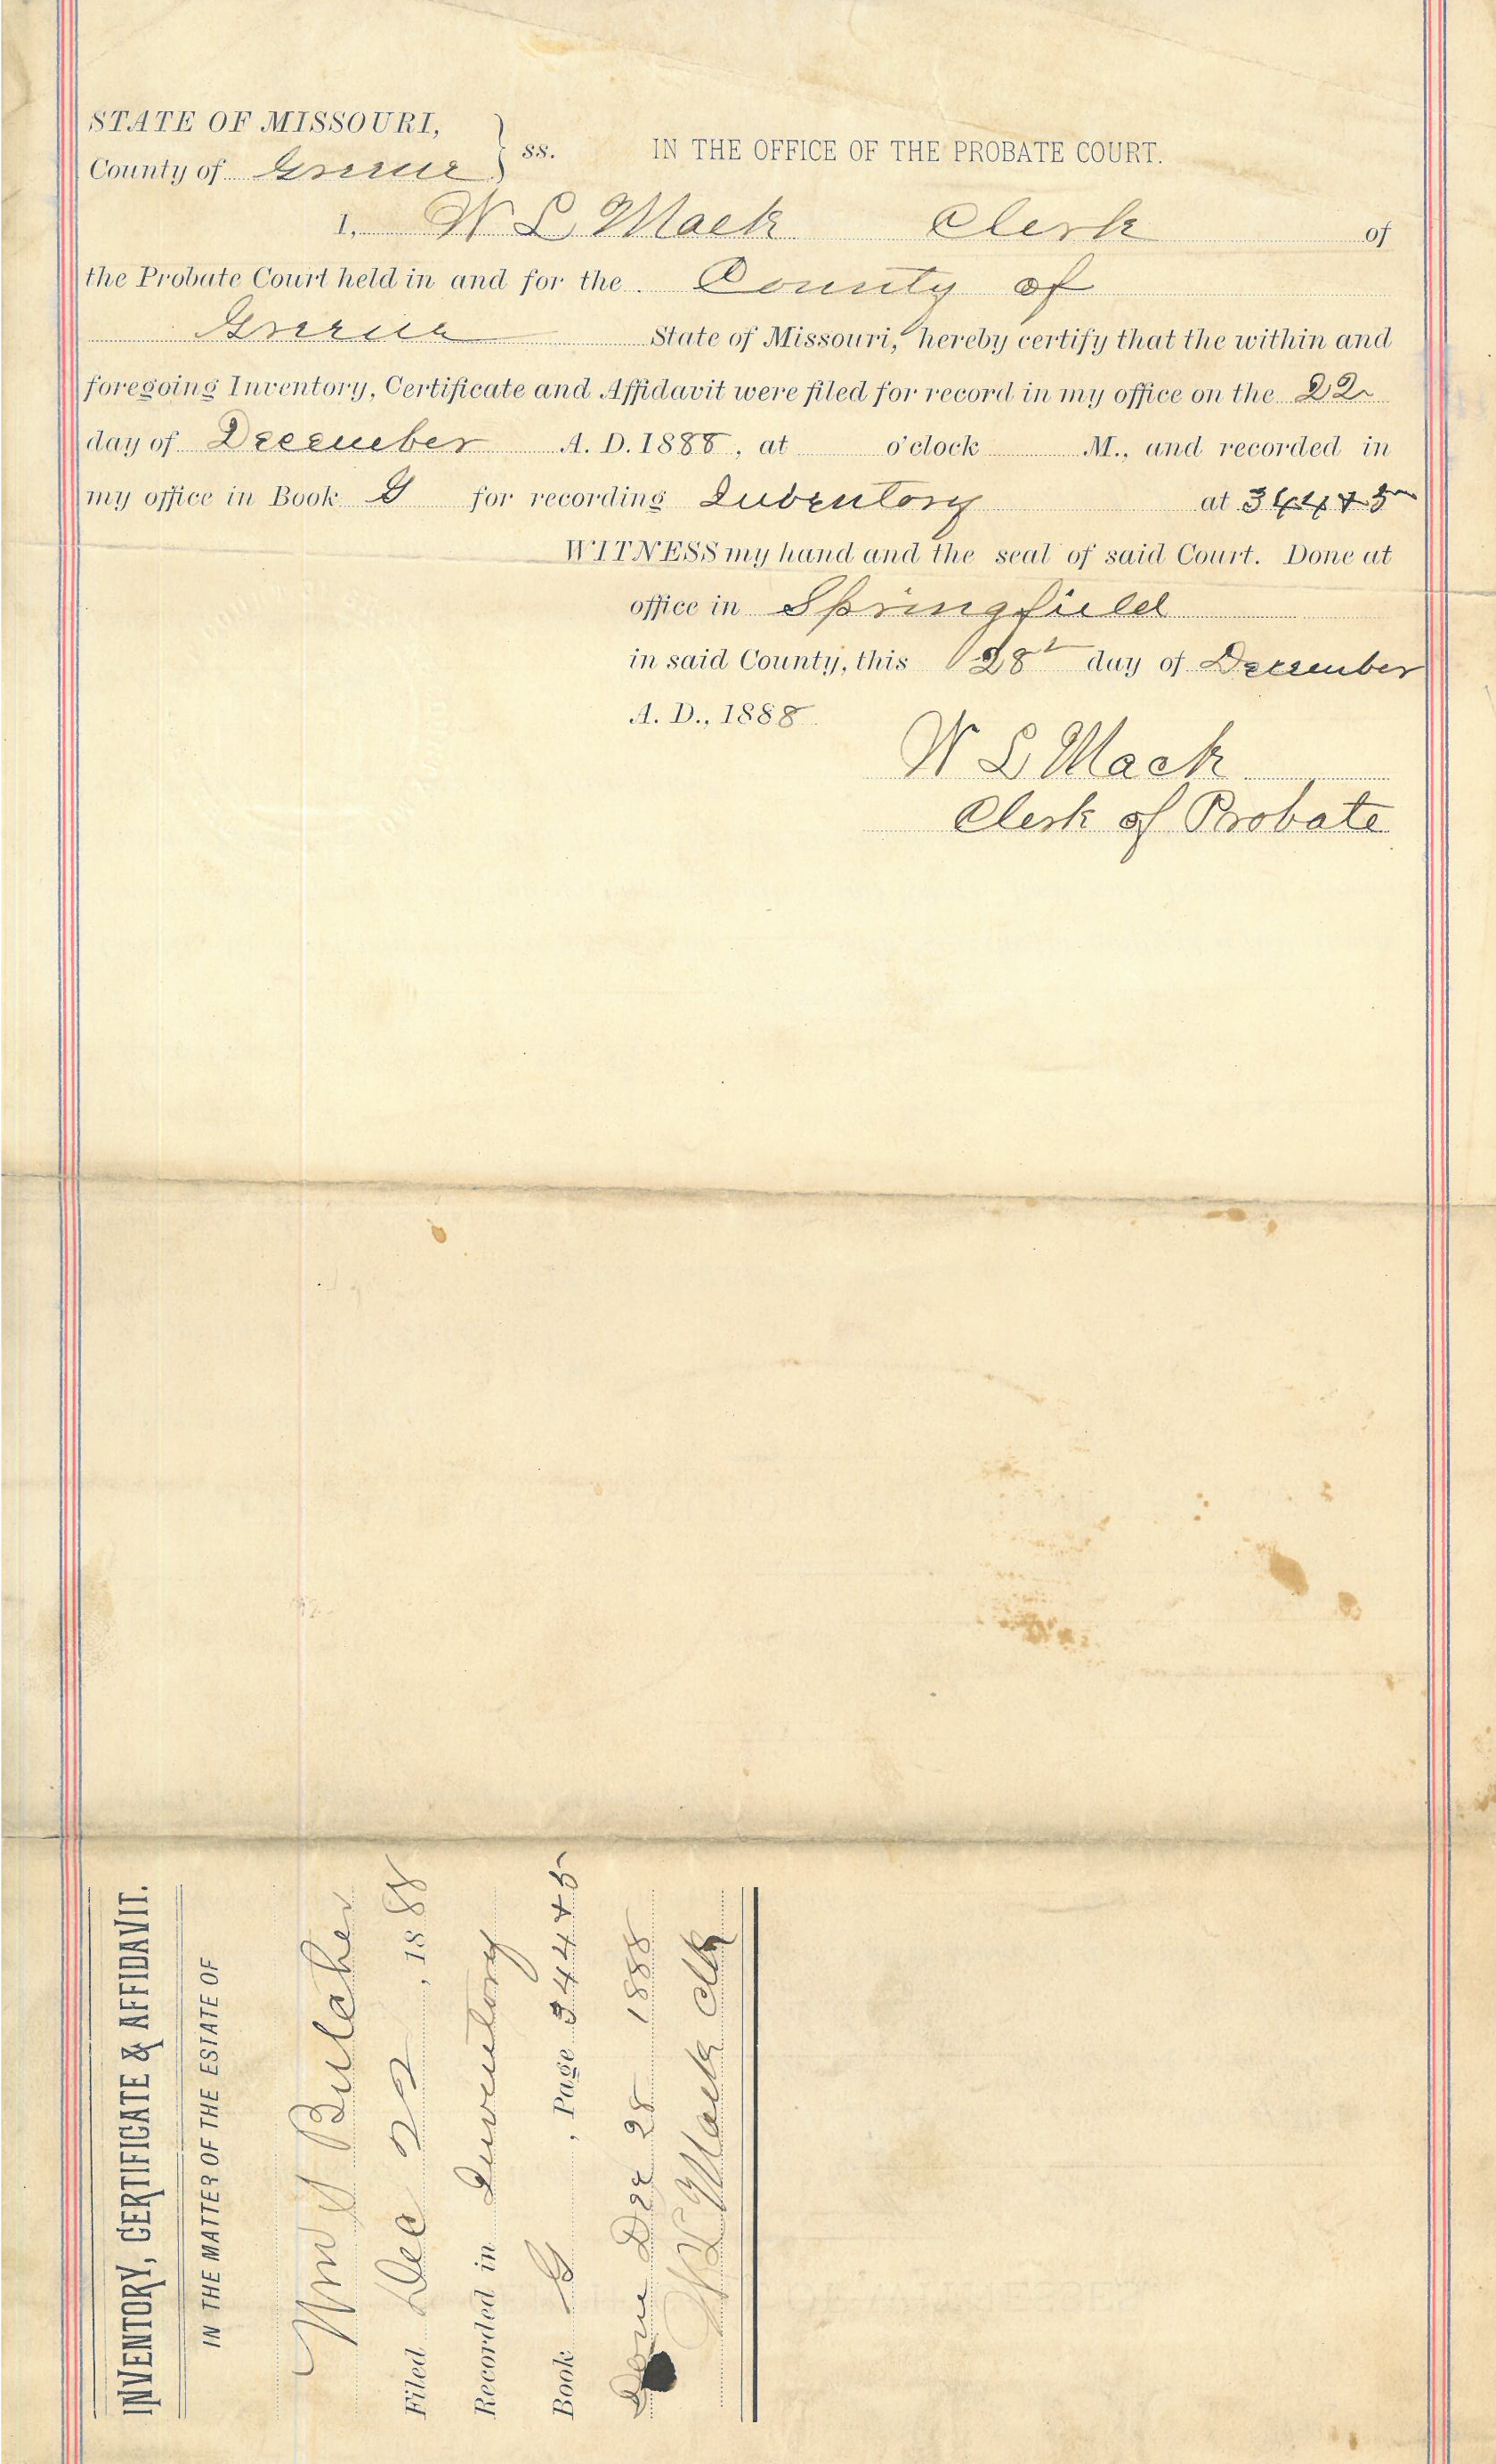 STATE OF MISSOURI,
County of Greene } ss. IN THE OFFICE OF THE PROBATE COURT.
I, W L Mack Clerk of
the Probate Court held in and for the County of
Greene State of Missouri, hereby certify that the within and
foregoing Inventory, Certificate and Affidavit were filed for record in my office on the 22
day of December A. D. 1888, at o'clock M., and recorded in
my office in Book G for recording Inventory at 344 & 5
WITNESS my hand and the seal of said Court. Done at
office in Springfield
in said County, this 28 day of December
A. D., 1888
W L Mack
Clerk of Probate
INVENTORY, CERTIFICATE & AFFIDAVIT.
IN THE MATTER OF THE ESTATE OF
Wm S Butcher
Filed Dec 22, 1888
Recorded in Inventory
Book G, Page 344 & 5
Done Dec 28 1888
W L Mack Clk